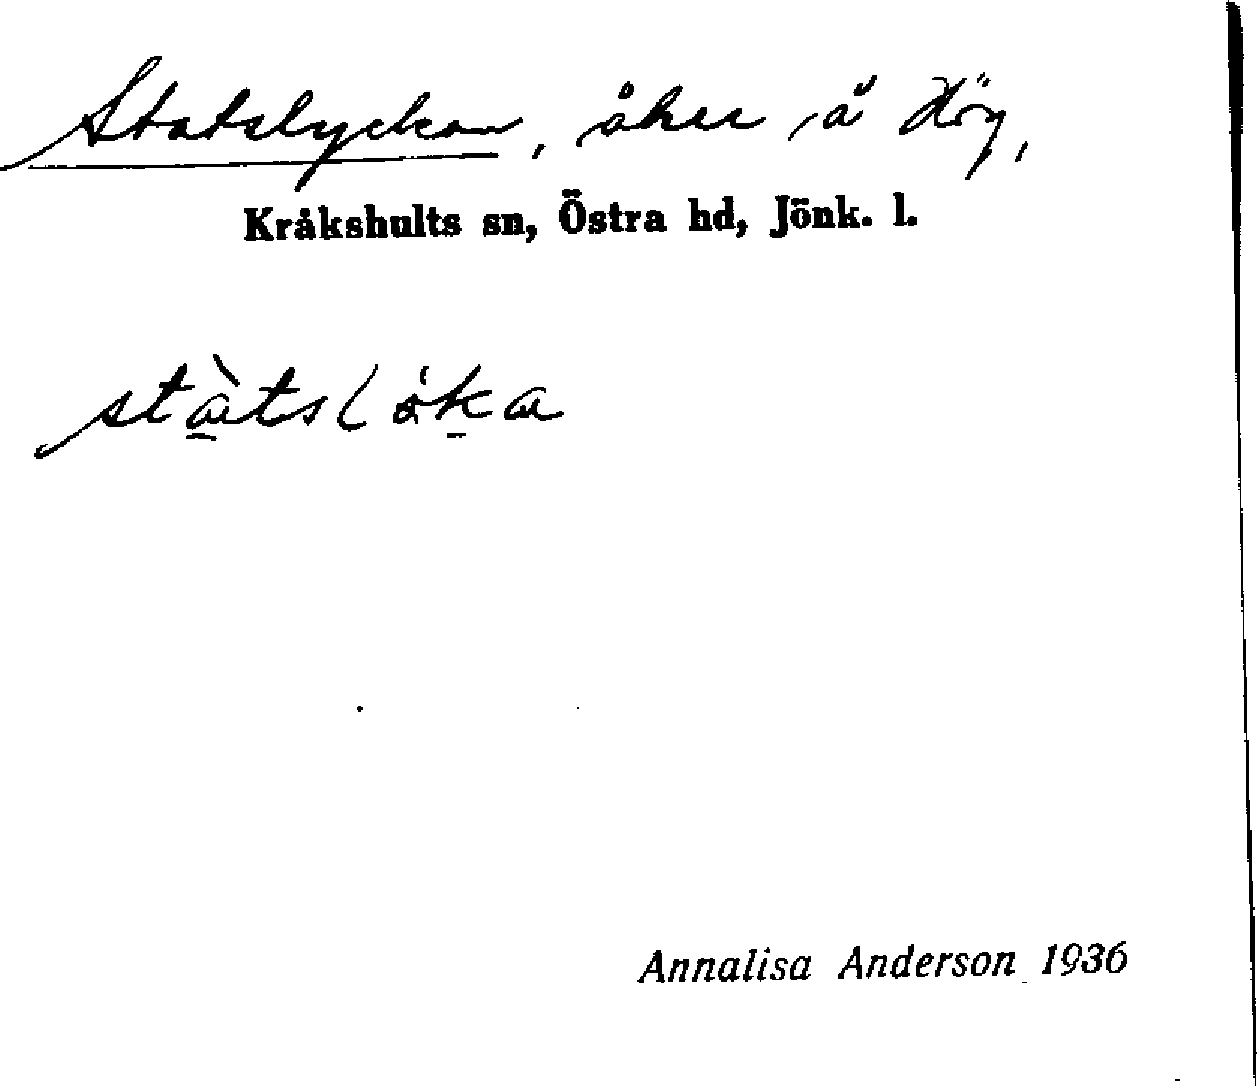 Statslyckan, åker å Hög,
Kråkshults sn, Östra hd, Jönk. l.
Annalisa Anderson 1936